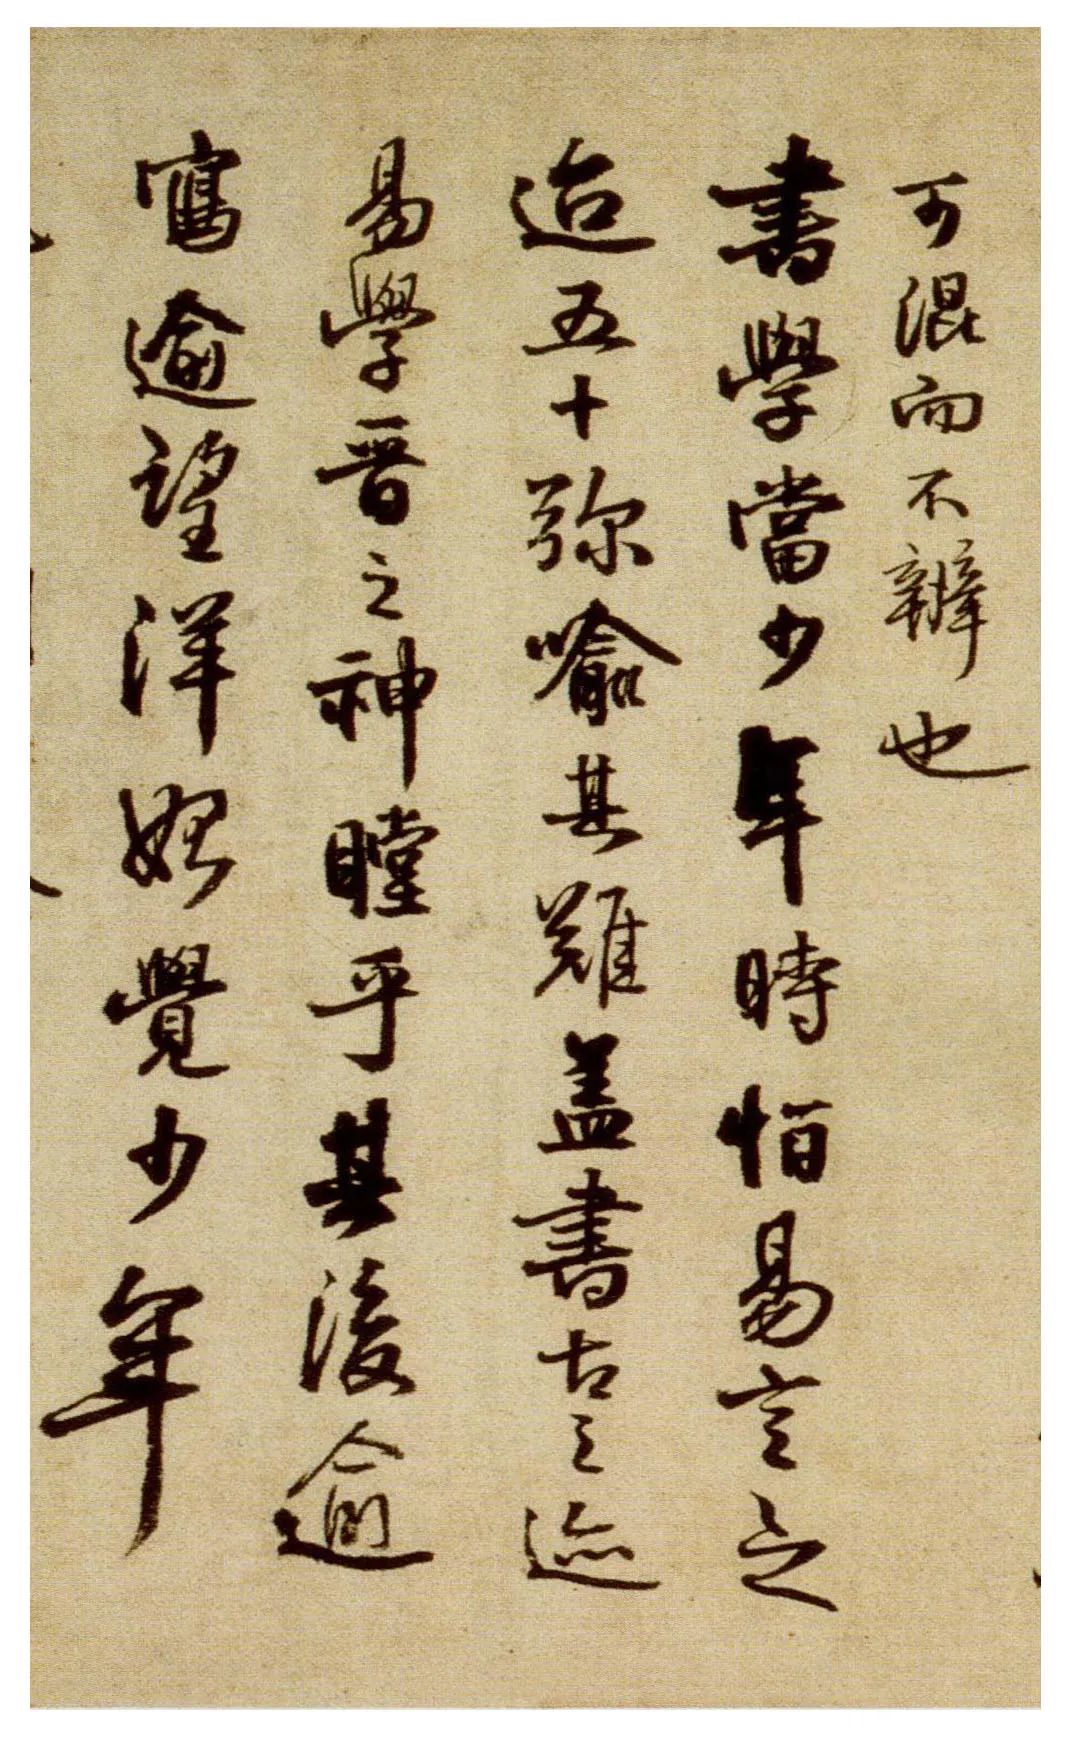 可混而不辨也
書學當少年時恒易言之
迨五十弥喻其難盖書古之迹
易學晉之神瞠乎其後逾
寫逾望洋始覺少年